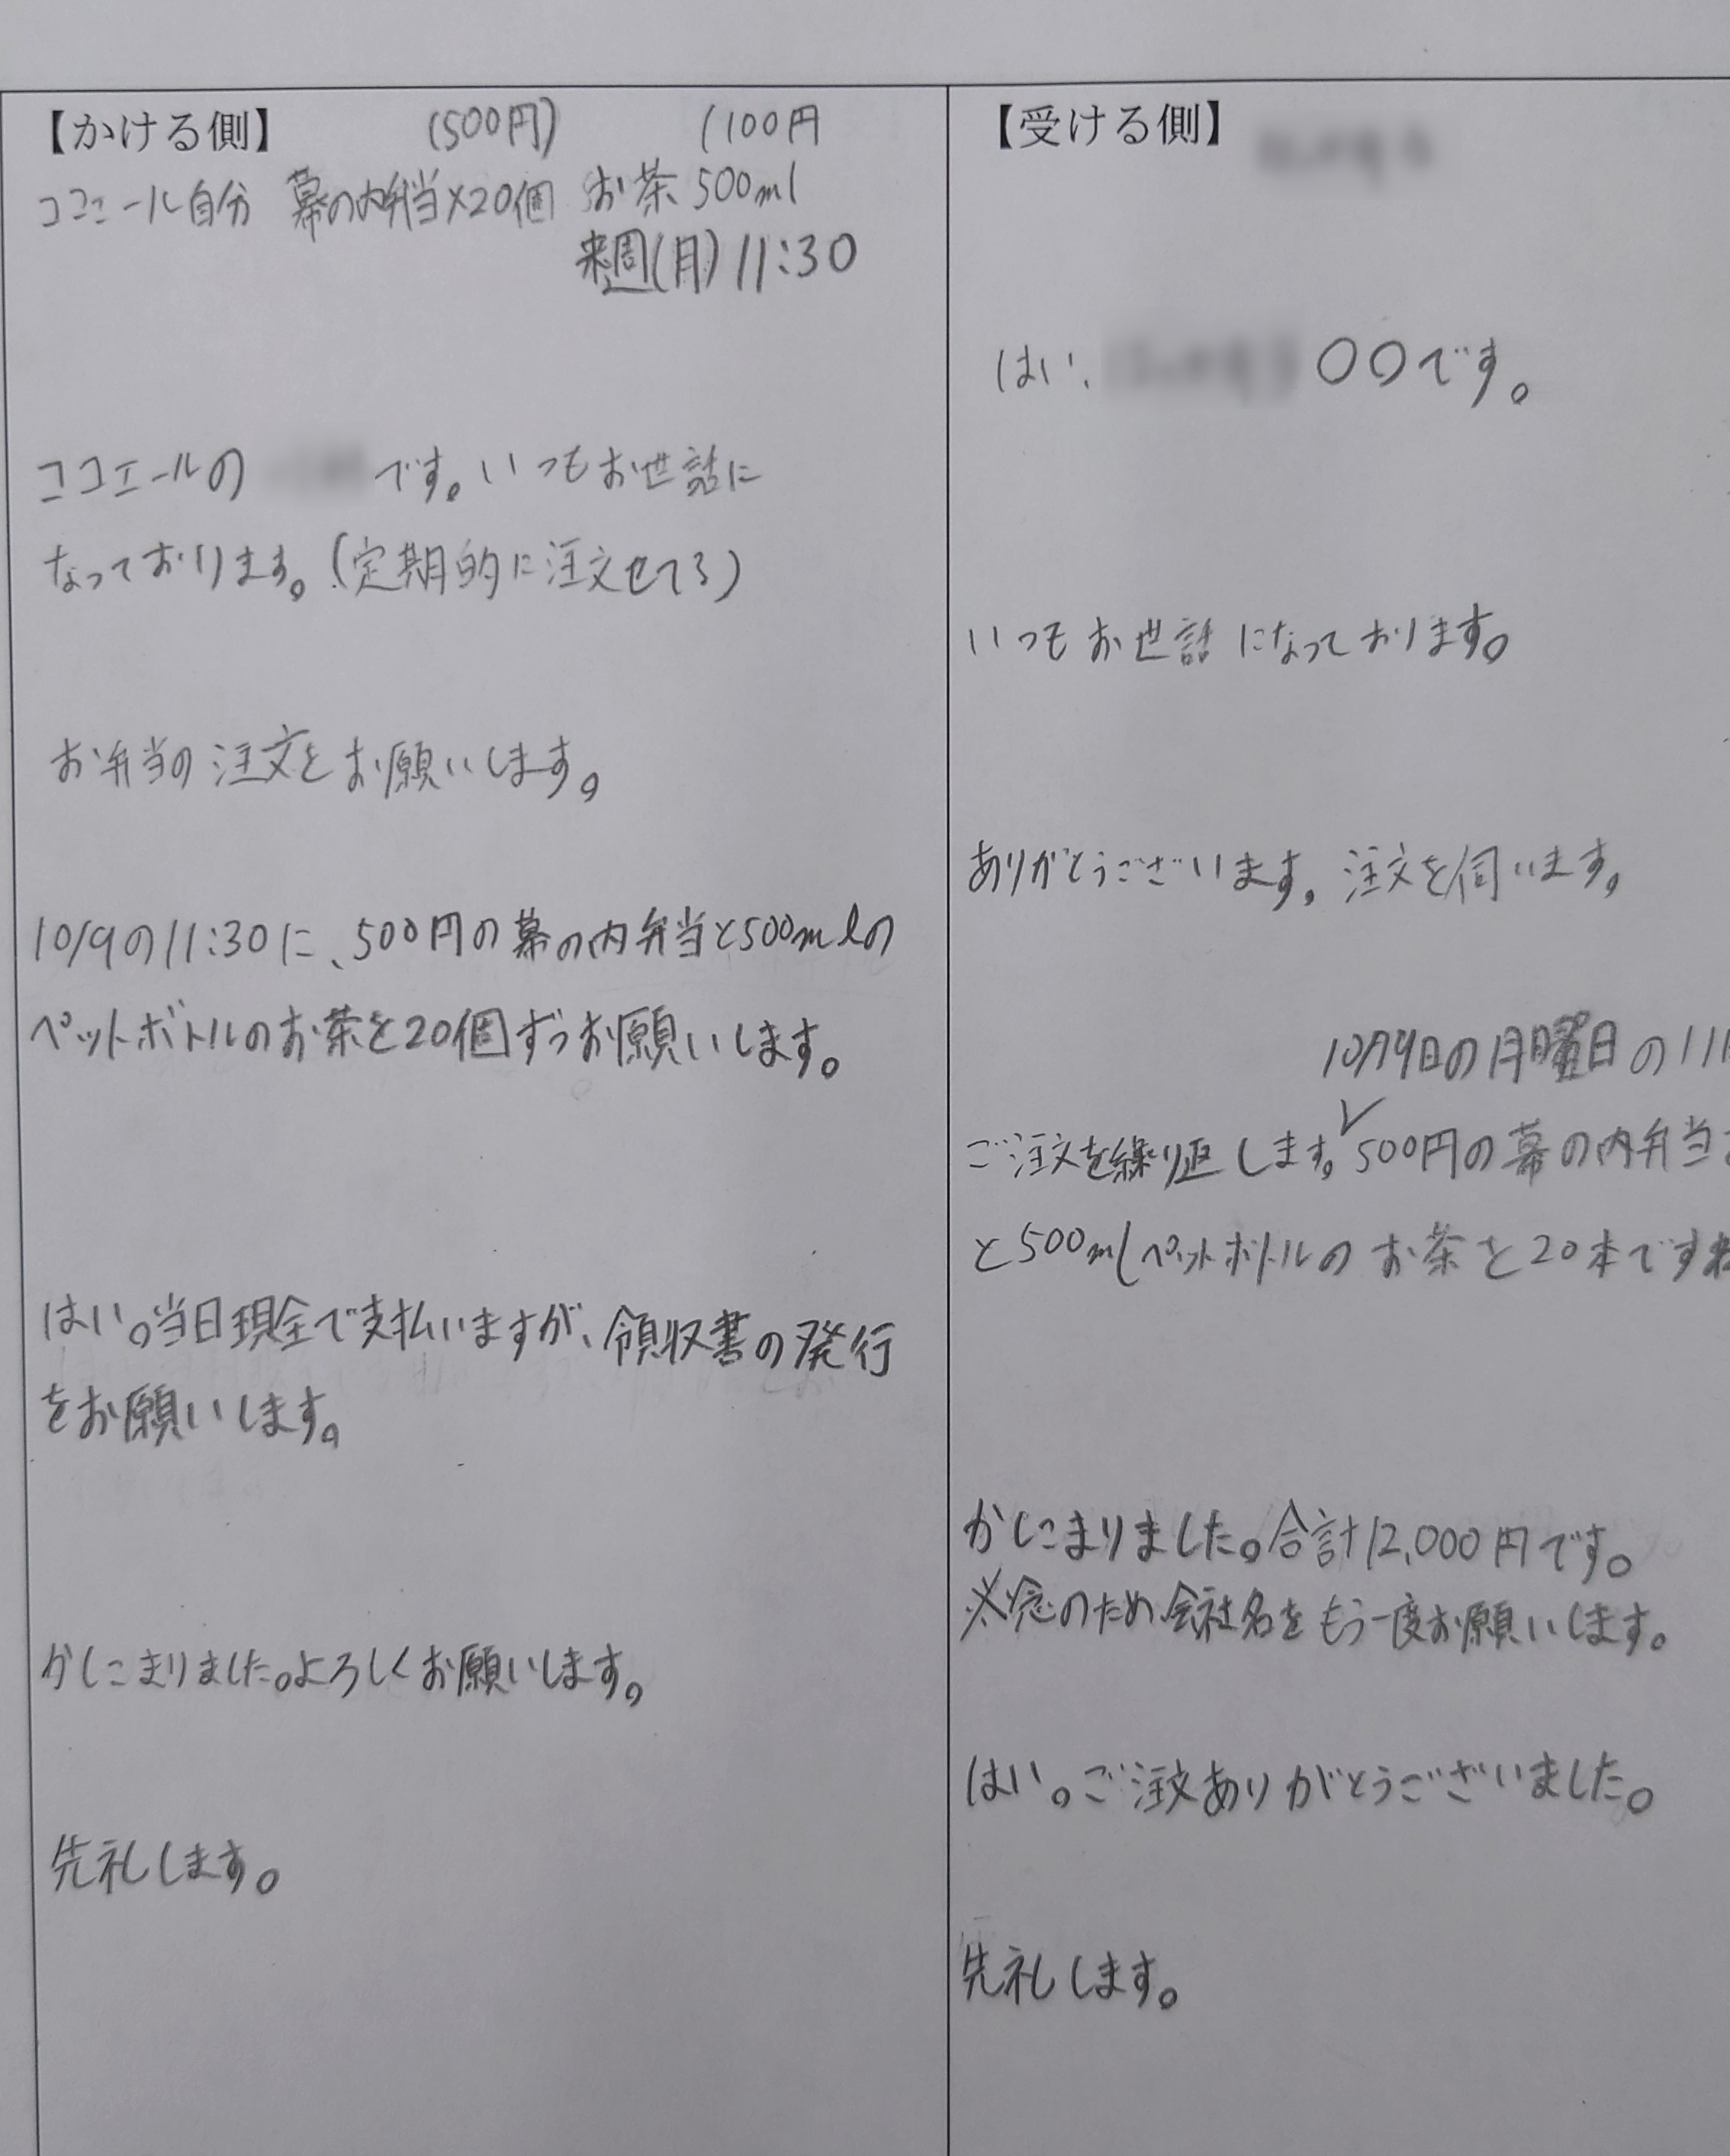 【かける側】 (500円) (100円
ココエール自分 幕の内弁当×20個 お茶500ml
来週(月)11:30
ココエールの です。いつもお世話に
なっております。(定期的に注文せてる)
お弁当の注文をお願いします。
10/9の11:30に、500円の幕の内弁当と500mlの
ペットボトルのお茶を20個ずつお願いします。
はい。当日現金で支払いますが、領収書の発行
をお願いします。
かしこまりました。よろしくお願いします。
失礼します。
【受ける側】
はい、 〇〇です。
いつもお世話になっております。
ありがとうございます。注文を伺います。
10月9日の月曜日の11
ご注文を繰り返します。500円の幕の内弁当
と500mlペットボトルのお茶を20本ですね
かしこまりました。合計12,000円です。
※念のため会社名をもう一度お願いします。
はい。ご注文ありがとうございました。
失礼します。